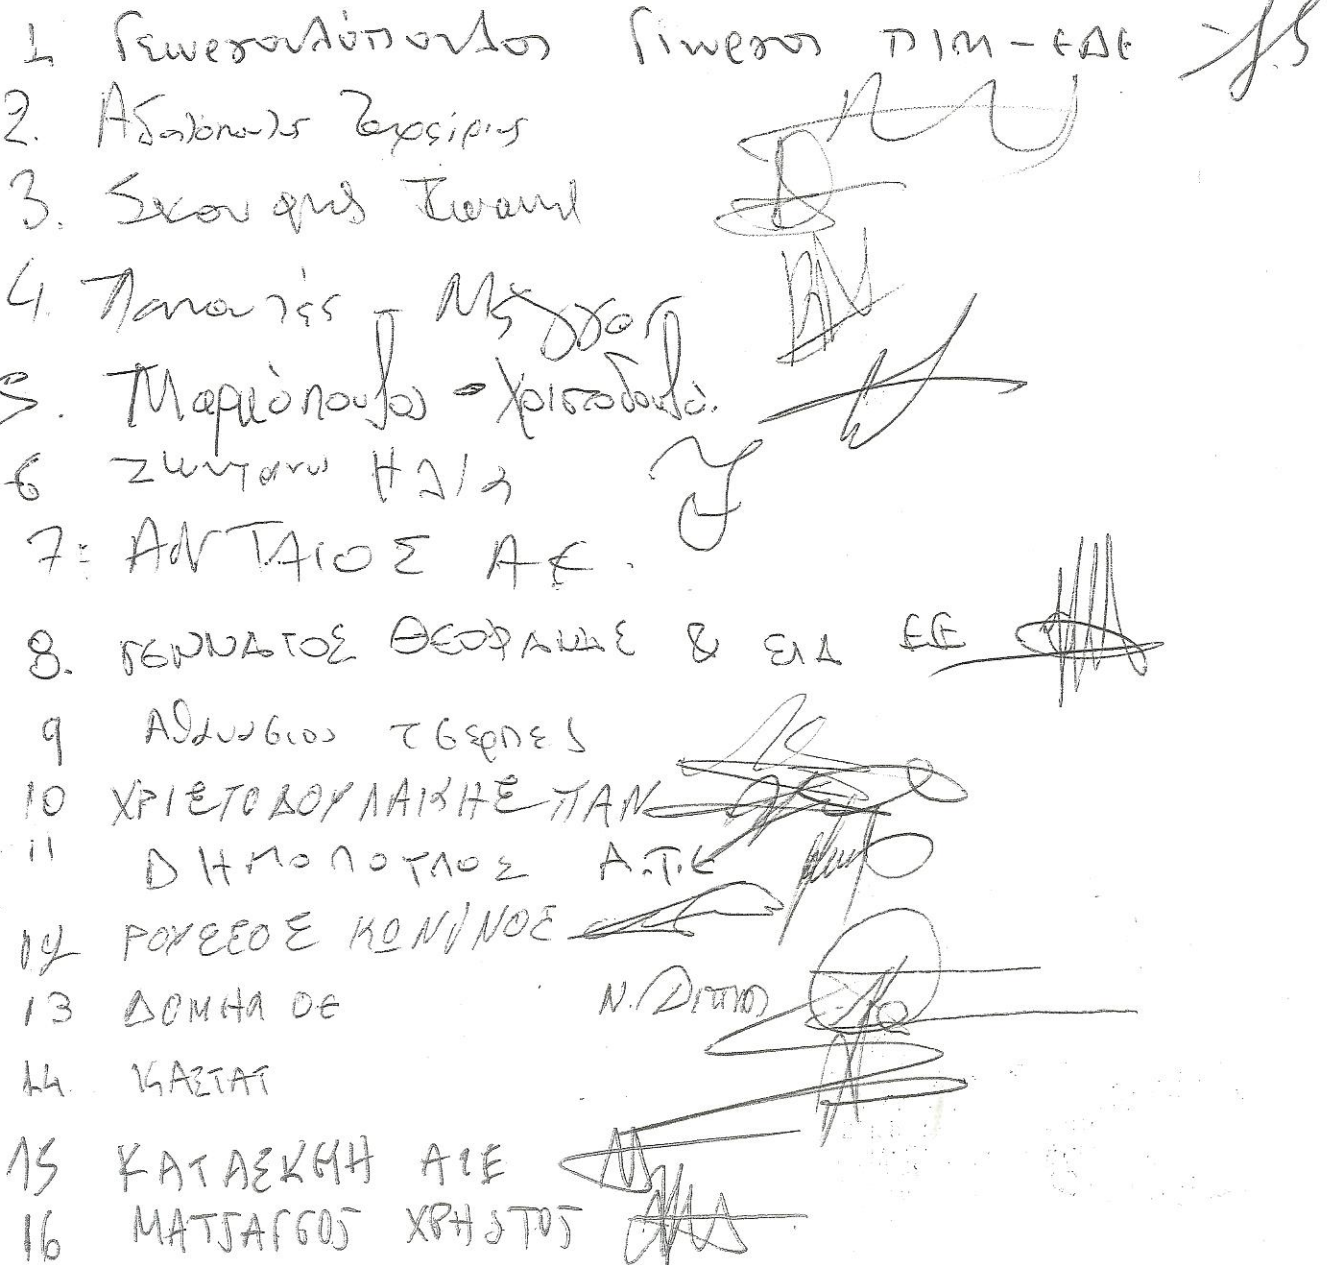 1 Γεωργουλόπουλος Γιώργος ΠΙΜ-ΕΔΕ
2. Αδαλόπουλος Ζαχαρίας
3. Σκουφής Ιωάννης
4 Παπουλιάς - Μέγγος
5. Μαρκόπουλος - Χριστοδουλό.
6 Ζωντανού Ηλία
7: ΑΝΤΑΙΟΣ ΑΕ.
8. ΓΕΝΝΑΤΟΣ ΘΕΟΦΑΝΗΣ & ΣΙΑ ΕΕ
9 Αθανάσιος Τσερπές
10 ΧΡΙΣΤΟΔΟΥΛΑΚΗΣ ΠΑΝ
11 ΔΗΜΟΠΟΥΛΟΣ Α.Τ.Ε
12 ΡΟΥΣΣΟΣ ΚΩΝ/ΝΟΣ
13 ΔΟΜΗΛ ΟΕ Ν.
14 ΚΑΣΤΑΤ
15 ΚΑΤΑΣΚΗΗ ΑΤΕ
16 ΜΑΤΣΑΓΓΟΣ ΧΡΗΣΤΟΣ